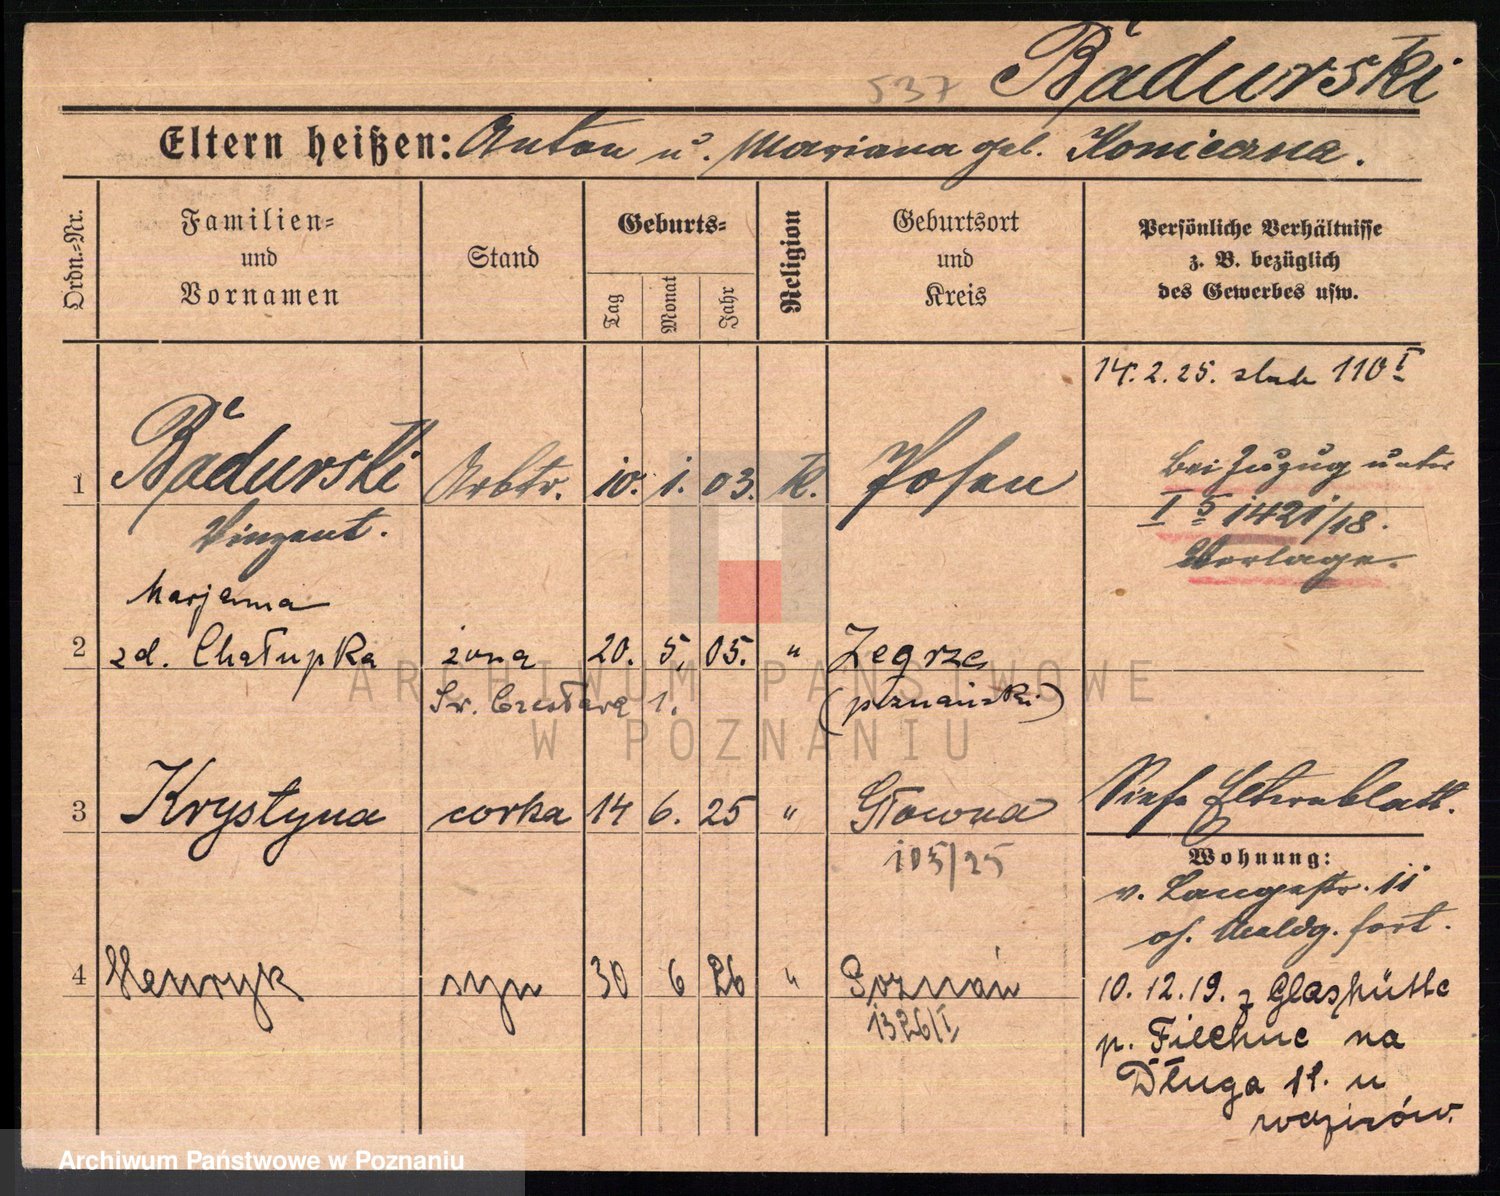 537 Bądurski
Eltern heißen: Anton u. Mariana geb. Konieczna.
Ordn.-Nr.
Familien-
und
Vornamen
Stand
Geburts-
Tag
Monat
Jahr
Religion
Geburtsort
und
Kreis
Persönliche Verhältnisse
z. B. bezüglich
des Gewerbes usw.
14. 2. 25. ślub 110 I
1 Bądurski Arbtr. 10. 1. 03. K. Posen bei Zuzug unter
Vinzent. I 5 1421/18.
Vorlage.
Marjanna
2 zd. Chałupka żona 20. 5. 05. " Zegrze
(poznański)
3 Krystyna corka 14 6. 25 " Główna Siehe Elternblatt.
105/25
Wohnung:
v. Langestr. 11
of. Meldg. fort.
4 Henryk syn 30 6 26 " Poznań 10. 12. 19. z Glashütte
1326/I
p. Filehne na
Długa 11. u
rodziców.
ARCHIWUM PAŃSTWOWE
W POZNANIU
Archiwum Państwowe w Poznaniu